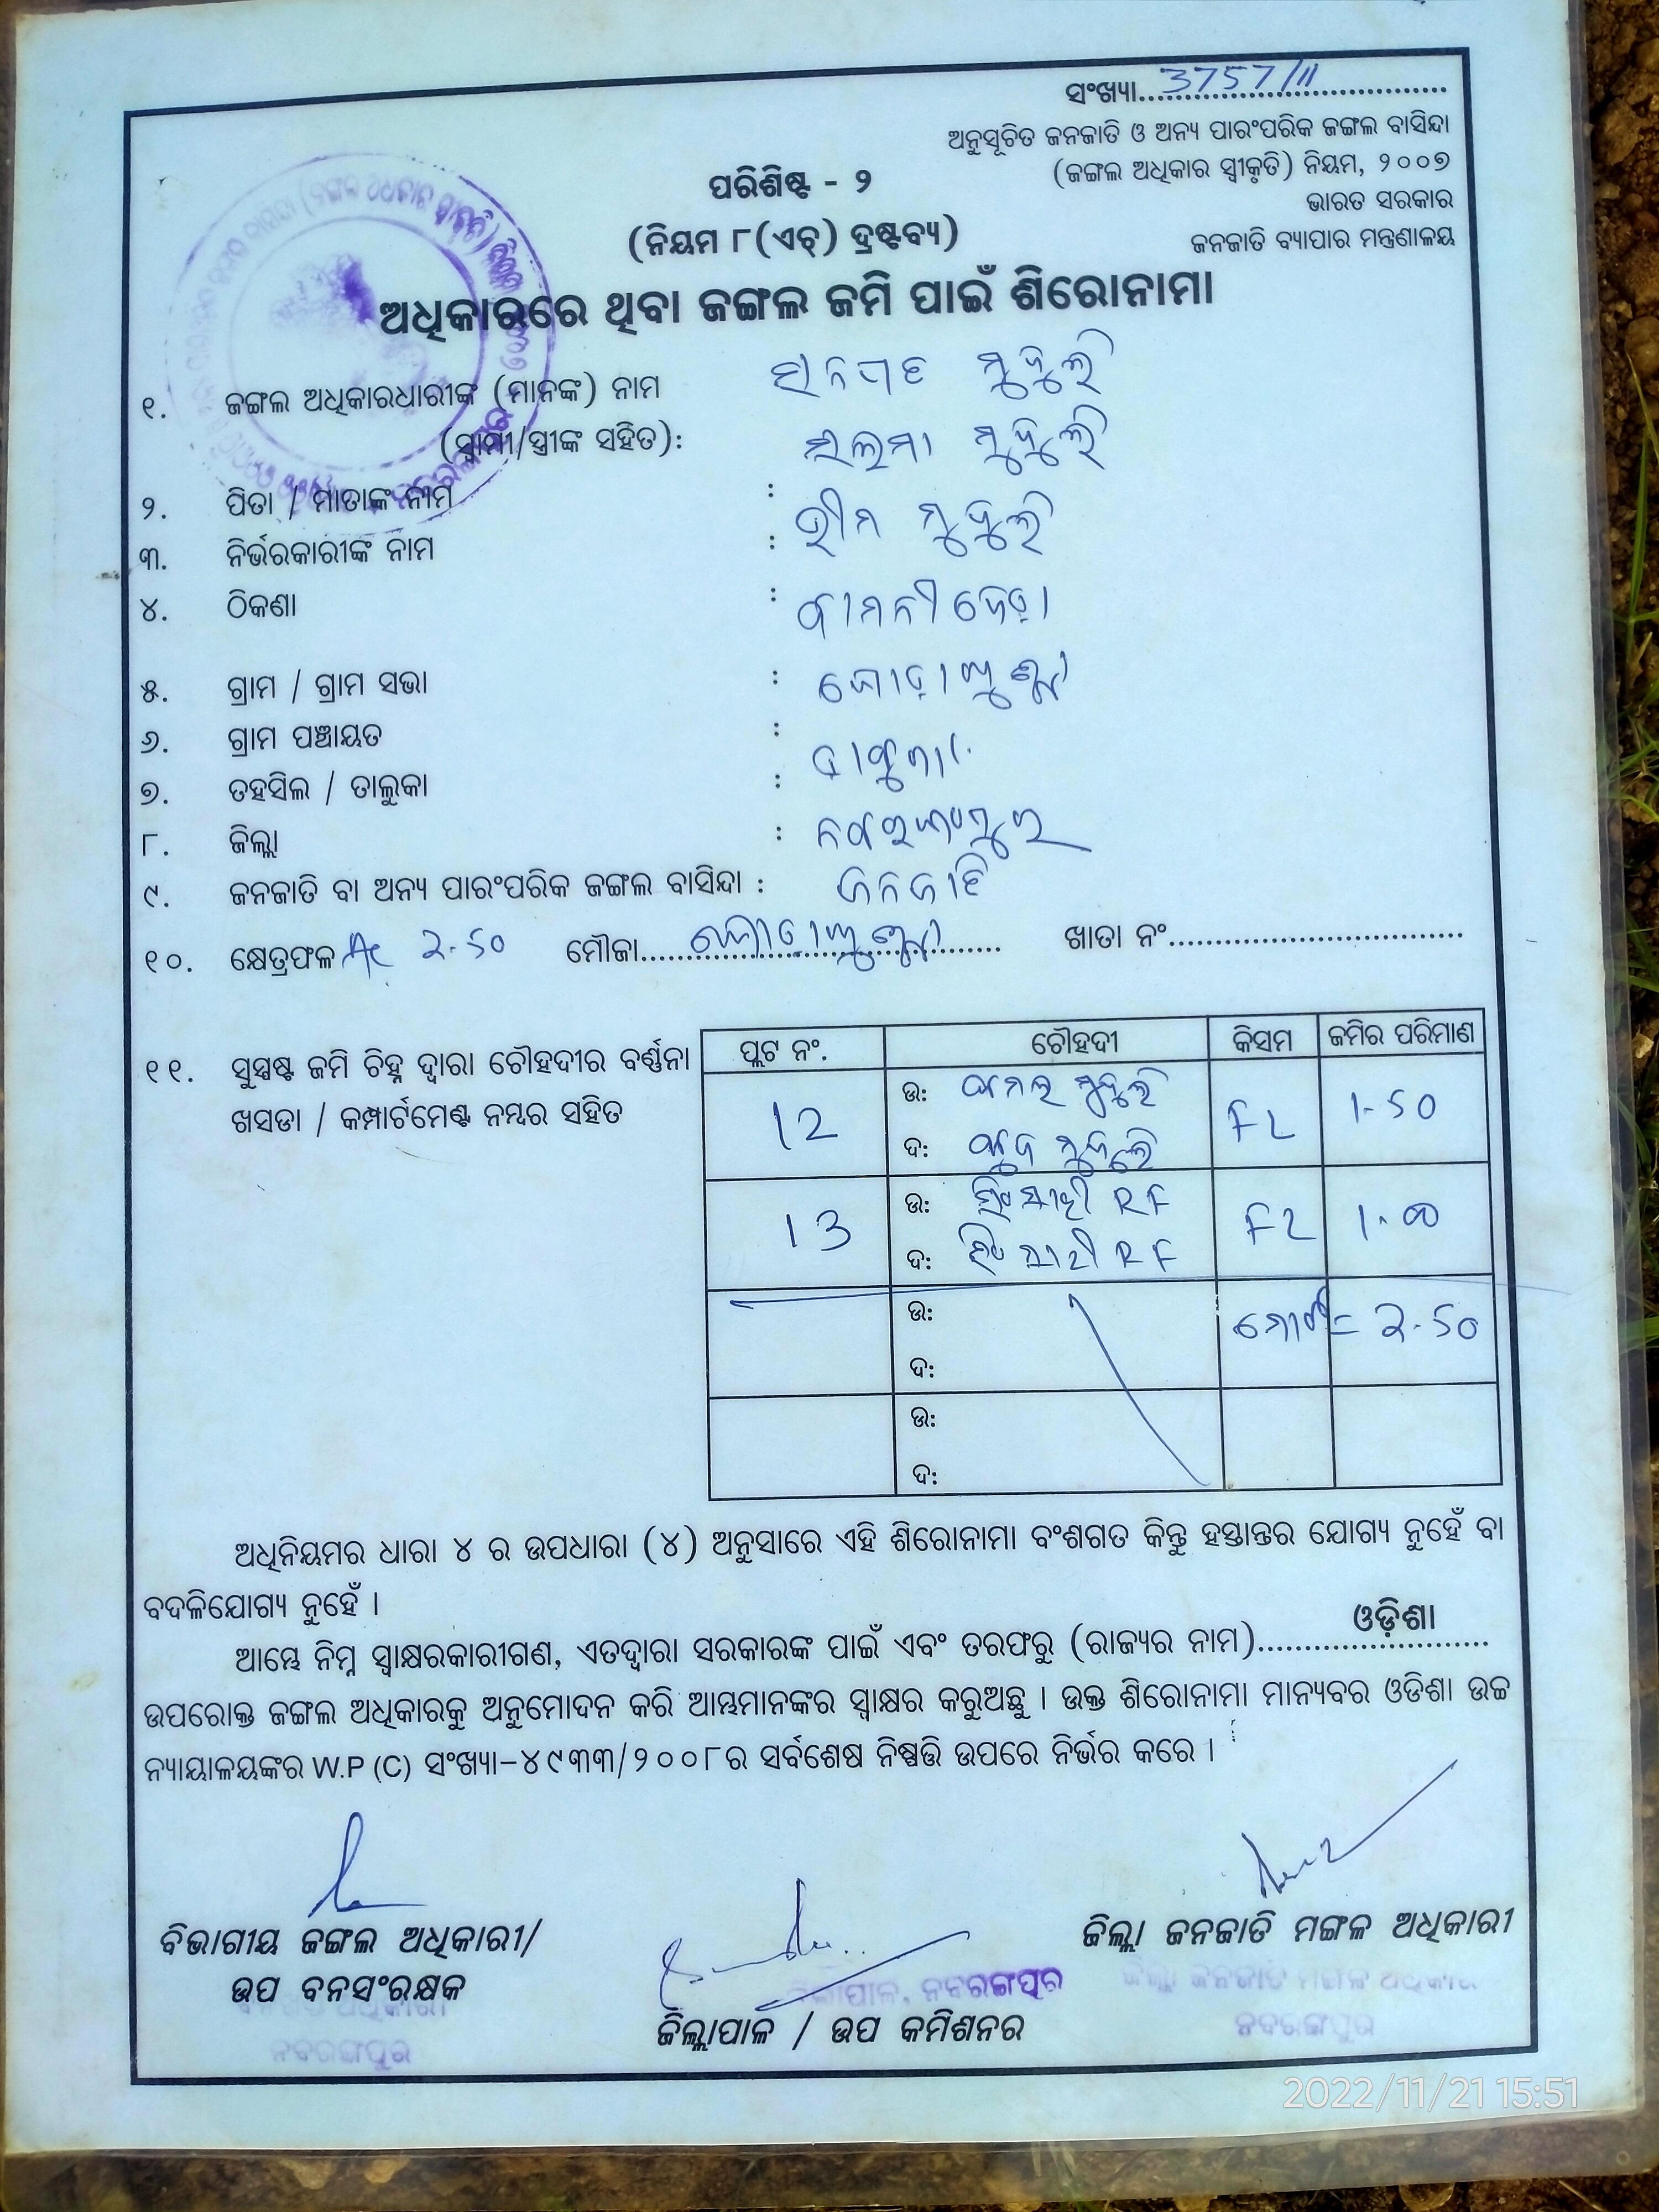 ସଂଖ୍ୟା 3757/11
ଅନୁସୂଚିତ ଜନଜାତି ଓ ଅନ୍ୟ ପାରଂପରିକ ଜଙ୍ଗଲ ବାସିନ୍ଦା
(ଜଙ୍ଗଲ ଅଧିକାର ସ୍ୱୀକୃତି) ନିୟମ, ୨୦୦୭
ଭାରତ ସରକାର
ଜନଜାତି ବ୍ୟାପାର ମନ୍ତ୍ରଣାଳୟ
ପରିଶିଷ୍ଟ - ୨
(ନିୟମ ୮(ଏଚ୍) ଦ୍ରଷ୍ଟବ୍ୟ)
ଅଧିକାରରେ ଥିବା ଜଙ୍ଗଲ ଜମି ପାଇଁ ଶିରୋନାମା
୧. ଜଙ୍ଗଲ ଅଧିକାରଧାରୀଙ୍କ (ମାନଙ୍କ) ନାମ ମୁଦୁଲି
(ସ୍ୱାମୀ/ସ୍ତ୍ରୀଙ୍କ ସହିତ): ମୁଦୁଲି
୨. ପିତା / ମାତାଙ୍କ ନାମ : ଭୀମ ମୁଦୁଲି
୩. ନିର୍ଭରକାରୀଙ୍କ ନାମ :
୪. ଠିକଣା :
୫. ଗ୍ରାମ / ଗ୍ରାମ ସଭା :
୬. ଗ୍ରାମ ପଞ୍ଚାୟତ :
୭. ତହସିଲ / ତାଲୁକା :
୮. ଜିଲ୍ଲା : ନବରଙ୍ଗପୁର
୯. ଜନଜାତି ବା ଅନ୍ୟ ପାରଂପରିକ ଜଙ୍ଗଲ ବାସିନ୍ଦା : ଜନଜାତି
୧୦. କ୍ଷେତ୍ରଫଳ Ac 2.50 ମୌଜା ଖାତା ନଂ
୧୧. ସୁସ୍ପଷ୍ଟ ଜମି ଚିହ୍ନ ଦ୍ୱାରା ଚୌହଦୀର ବର୍ଣ୍ଣନା
ଖସଡା / କମ୍ପାର୍ଟମେଣ୍ଟ ନମ୍ବର ସହିତ
ପ୍ଲଟ ନଂ. ଚୌହଦୀ କିସମ ଜମିର ପରିମାଣ
12 ଉ: ମୁଦୁଲି FL 1.50
ଦ: ମୁଦୁଲି
13 ଉ: RF FL 1.00
ଦ: RF
ଉ: ମୋଟ = 2.50
ଦ:
ଉ:
ଦ:
ଅଧିନିୟମର ଧାରା ୪ ର ଉପଧାରା (୪) ଅନୁସାରେ ଏହି ଶିରୋନାମା ବଂଶଗତ କିନ୍ତୁ ହସ୍ତାନ୍ତର ଯୋଗ୍ୟ ନୁହେଁ ବା
ବଦଳିଯୋଗ୍ୟ ନୁହେଁ ।
ଆମ୍ଭେ ନିମ୍ନ ସ୍ୱାକ୍ଷରକାରୀଗଣ, ଏତଦ୍ୱାରା ସରକାରଙ୍କ ପାଇଁ ଏବଂ ତରଫରୁ (ରାଜ୍ୟର ନାମ) ଓଡ଼ିଶା
ଉପରୋକ୍ତ ଜଙ୍ଗଲ ଅଧିକାରକୁ ଅନୁମୋଦନ କରି ଆମ୍ଭମାନଙ୍କର ସ୍ୱାକ୍ଷର କରୁଅଛୁ । ଉକ୍ତ ଶିରୋନାମା ମାନ୍ୟବର ଓଡିଶା ଉଚ୍ଚ
ନ୍ୟାୟାଳୟଙ୍କର W.P (C) ସଂଖ୍ୟା-୪୯୩୩/୨୦୦୮ର ସର୍ବଶେଷ ନିଷ୍ପତ୍ତି ଉପରେ ନିର୍ଭର କରେ ।
ବିଭାଗୀୟ ଜଙ୍ଗଲ ଅଧିକାରୀ/
ଉପ ବନସଂରକ୍ଷକ
ନବରଙ୍ଗପୁର
ଜିଲ୍ଲାପାଳ, ନବରଙ୍ଗପୁର
ଜିଲ୍ଲାପାଳ / ଉପ କମିଶନର
ଜିଲ୍ଲା ଜନଜାତି ମଙ୍ଗଳ ଅଧିକାରୀ
ଜିଲ୍ଲା ଜନଜାତି ମଙ୍ଗଳ ଅଧିକାରୀ
ନବରଙ୍ଗପୁର
2022/11/21 15:51